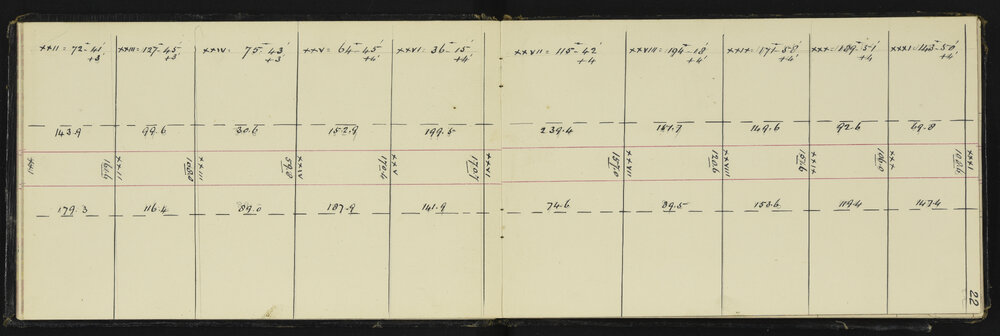 xxii = 72-41' xxiii = 127-45' xxiv = 75-43' xxv = 64-45' xxvi = 36-15' xxvii = 115-42 xxviii = 194-18' xxix = 171-58' xxx = 189-51' xxxi = 143-50'
+3' +3' +3' +4' +4' +4 +4' +4' +4 +4'
143.9 99.6 30.6 152.9 199.5 239.4 151.7 149.6 92.6 69.8
xxii xxiii xxiv xxv xxvi xxvii xxviii xxix xxx xxxi
161.6 59.8 170.4 170.7 157.0 120.6 108.6
179.3 116.4 89.0 187.9 141.9 74.6 89.5 153.6 119.4 147.4
22